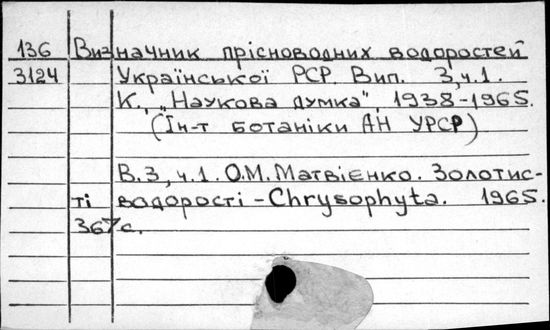 136 Визначник прісноводних водоростей
3124 Української РСР. Вип. 3, ч.1.
К., „Наукова думка", 1938-1965.
(Ін-т ботаніки АН УРСР)
В.3, ч.1. О.М. Матвієнко. Золотис-
ті водорості - Chrysophyta. 1965.
367с.